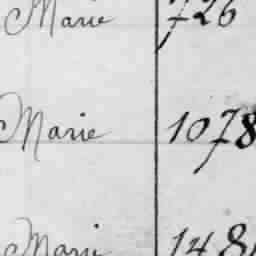 Marie 726
Marie 1078
Marie 148